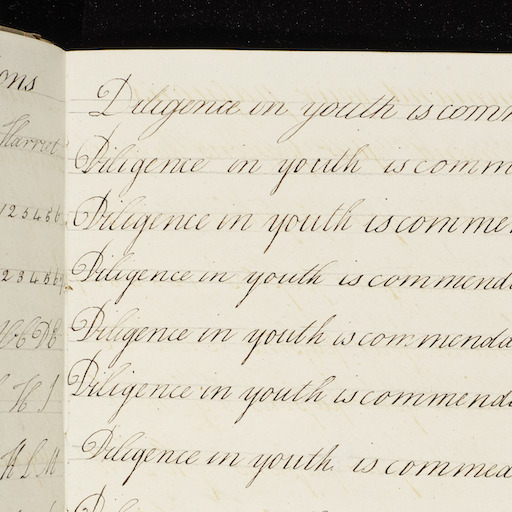 ons
Harriet
Diligence in youth is comm
Diligence in youth is comm
Diligence in youth is comme
Diligence in youth is commend
Diligence in youth is commenda
Diligence in youth is commenda
Diligence in youth is commeda